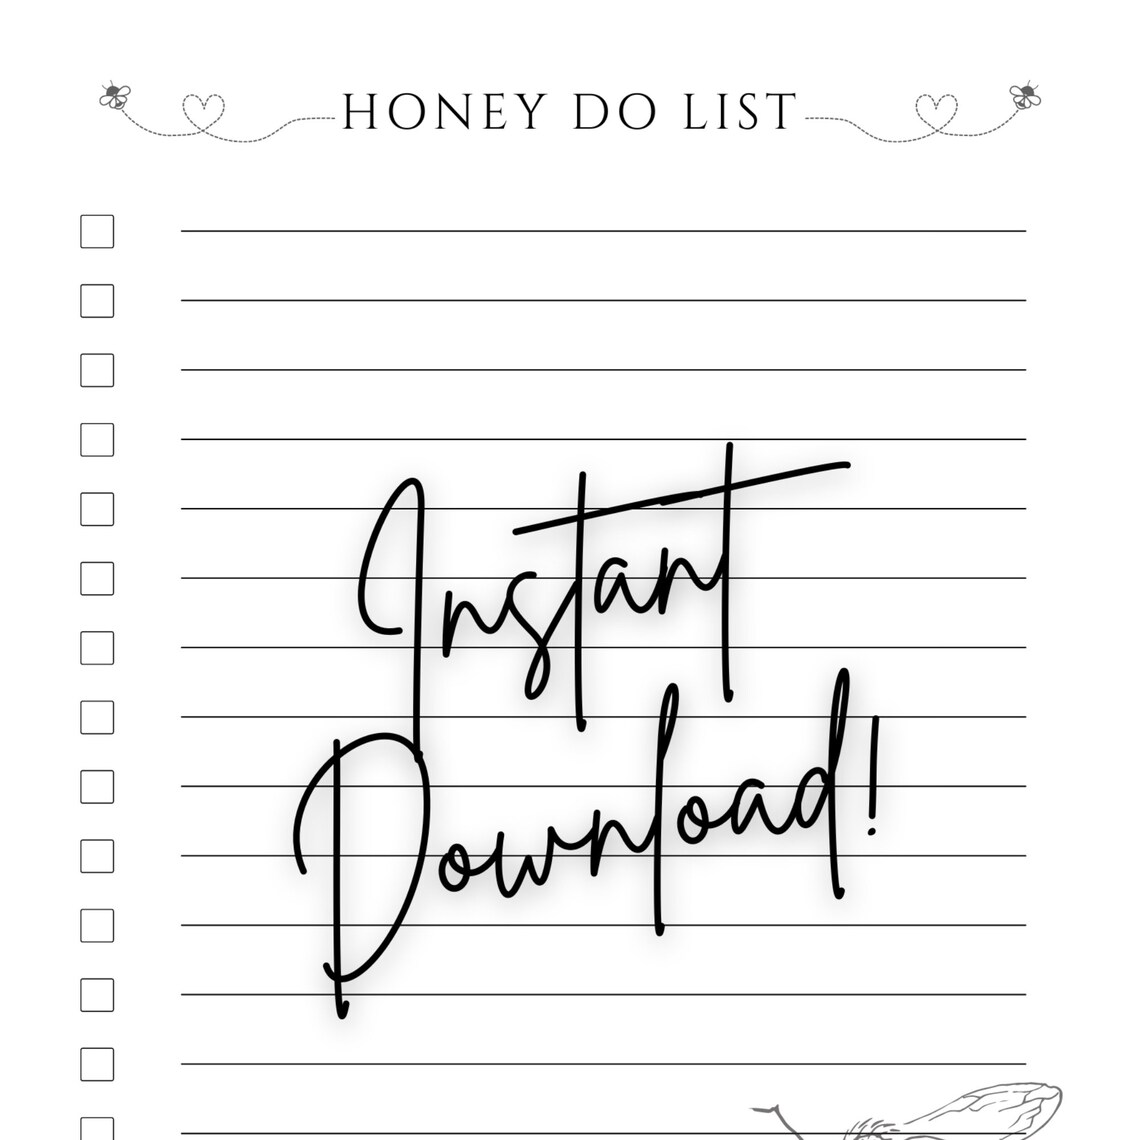 HONEY DO LIST
Instant
Download!